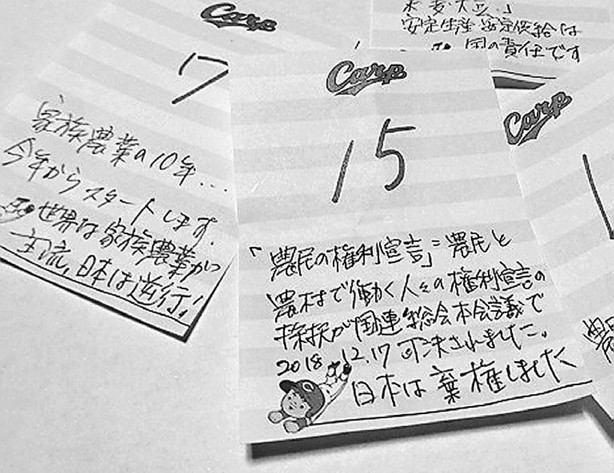 Carp
7
家族農業の10年…
今年からスタートします。
世界は家族農業が
主流、日本は逆行!
米・麦・大豆、」
安定生産・安定供給は
国の責任です
Carp
15
「農民の権利宣言」=農民と
農村で働く人々の権利宣言の
採択が国連総会本会議で
2018 12.17 可決されました。
日本は棄権しました
Carp
1